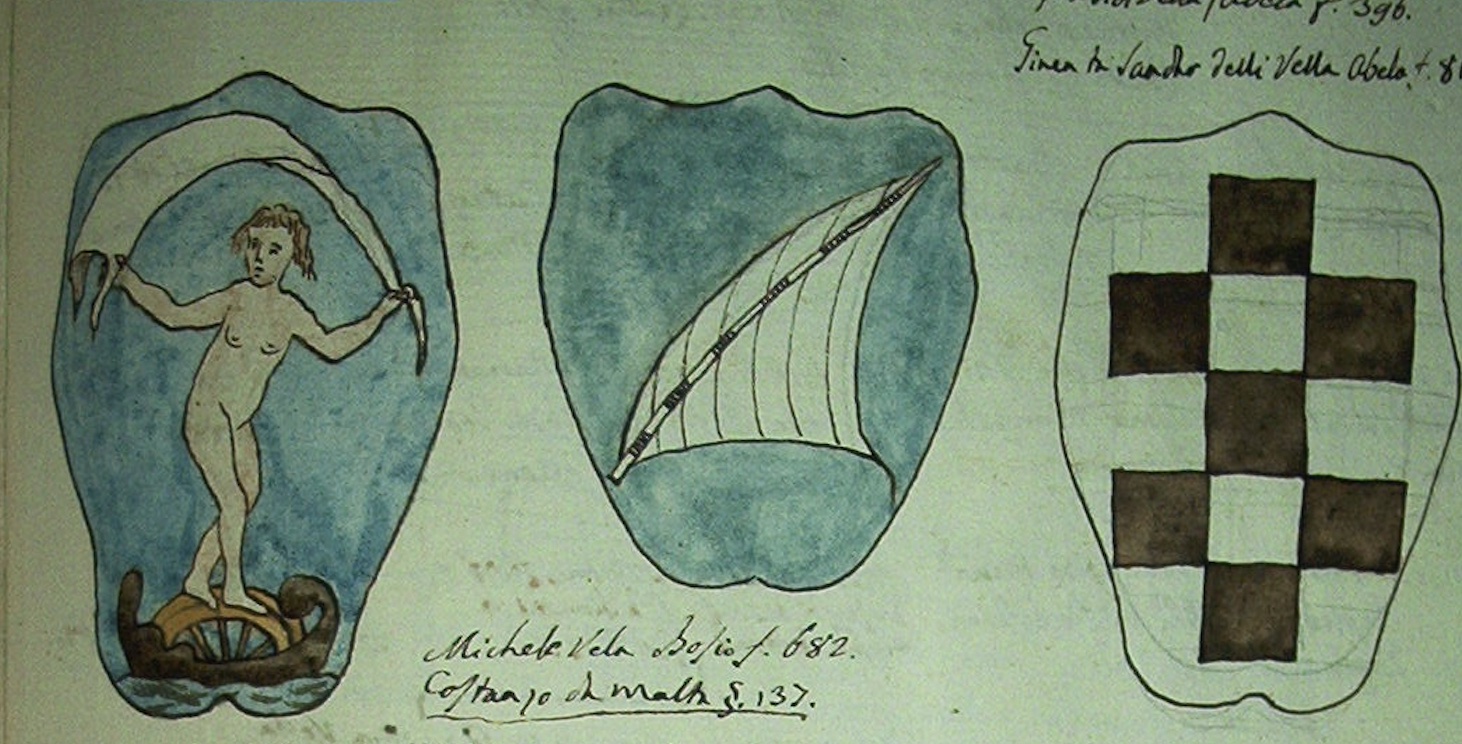 f. 396.
Ginea in Sandro delli Vella Abela f. 8
Michele Vela Bosio f. 682.
Costanzo da Malta f. 137.